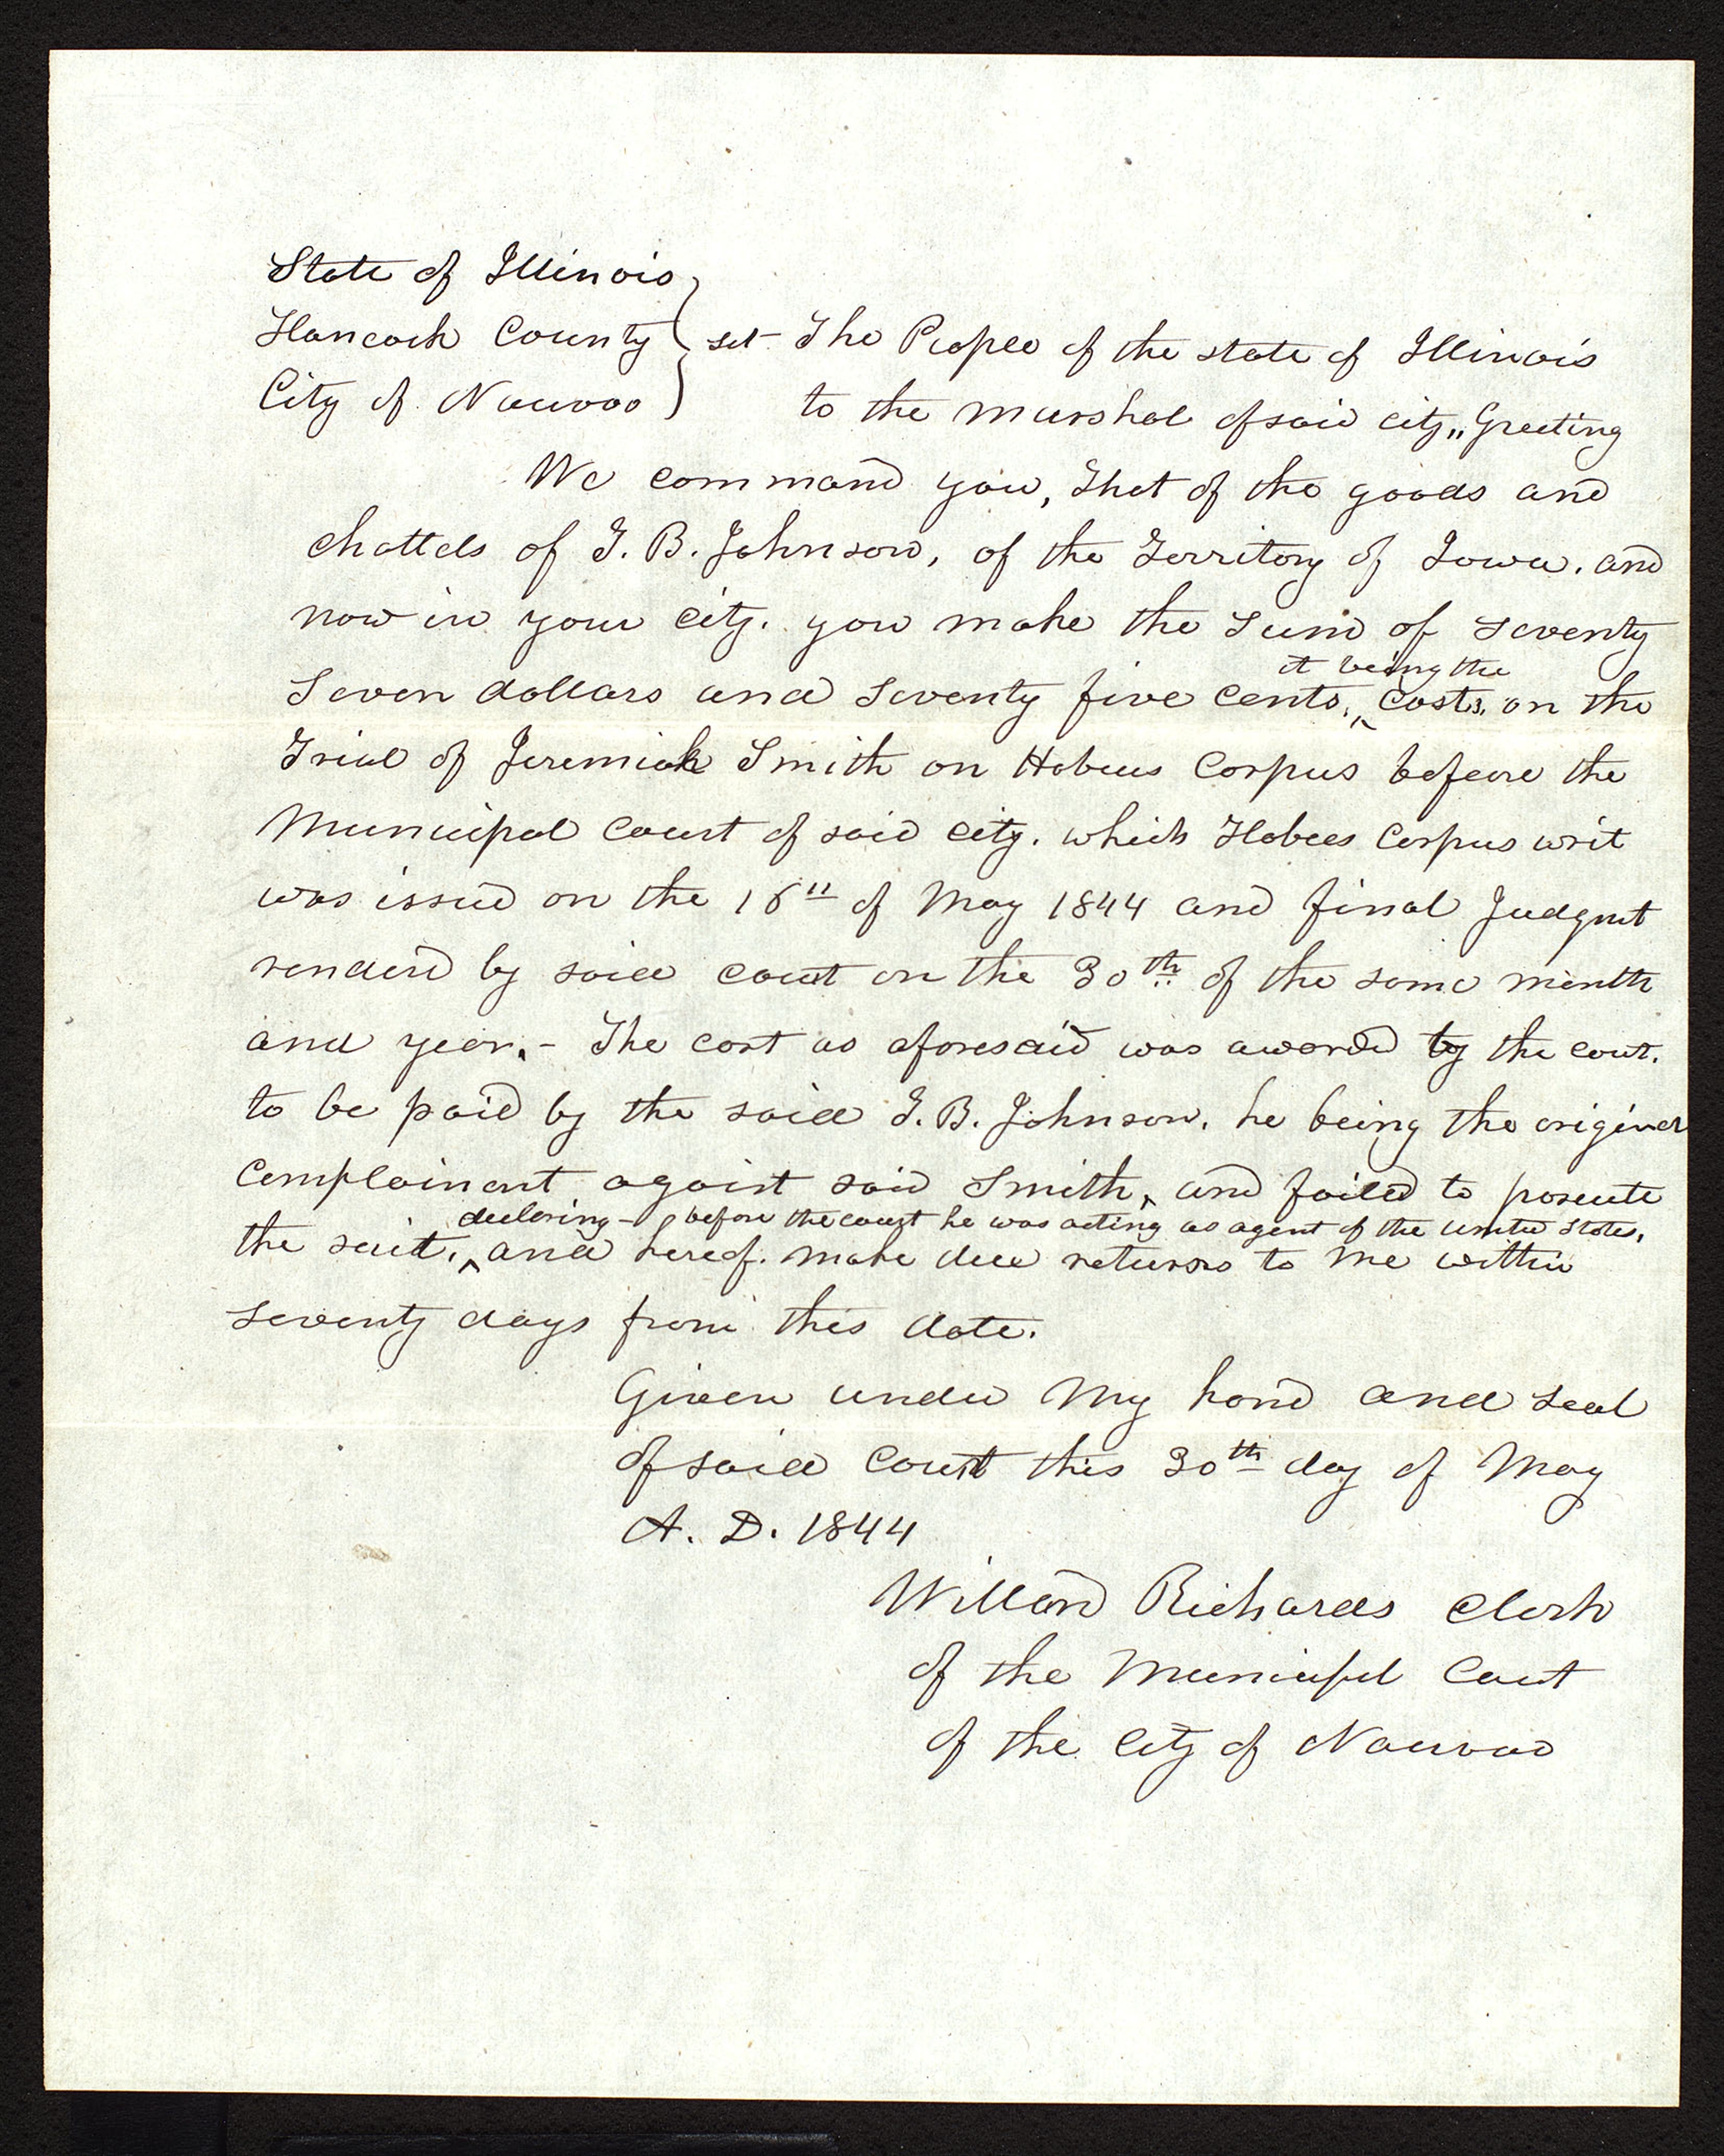 State of Illinois
Hancock County } sct The People of the state of Illinois
City of Nauvoo to the Marshal of said city,, Greeting
We command you, That of the goods and
chattels of T. B. Johnson, of the Territory of Iowa. and
now in your city. you make the Sum of seventy
it being the
Seven dollars and seventy five cents, ^ costs, on the
Trial of Jeremiah Smith on Habeus Corpus before the
Municipal Court of said city. which Habeus Corpus writ
was issued on the 16th of May 1844 and final Judgmt
renderd by said court on the 30th of the same month
and year.- The cost as aforesaid was awarded by the court.
to be paid by the said T. B. Johnson. he being the original
Complainant agaist said Smith, and failed to prosecute
declaring - before the court he was acting as agent of the United States,
the suit. ^ and hereof. make due returns to me within
seventy days from this date.
Given under My hand and seal
of said Court this 30th day of May
A. D. 1844
Willard Richards Clerk
of the Municipal Court
of the City of Nauvoo